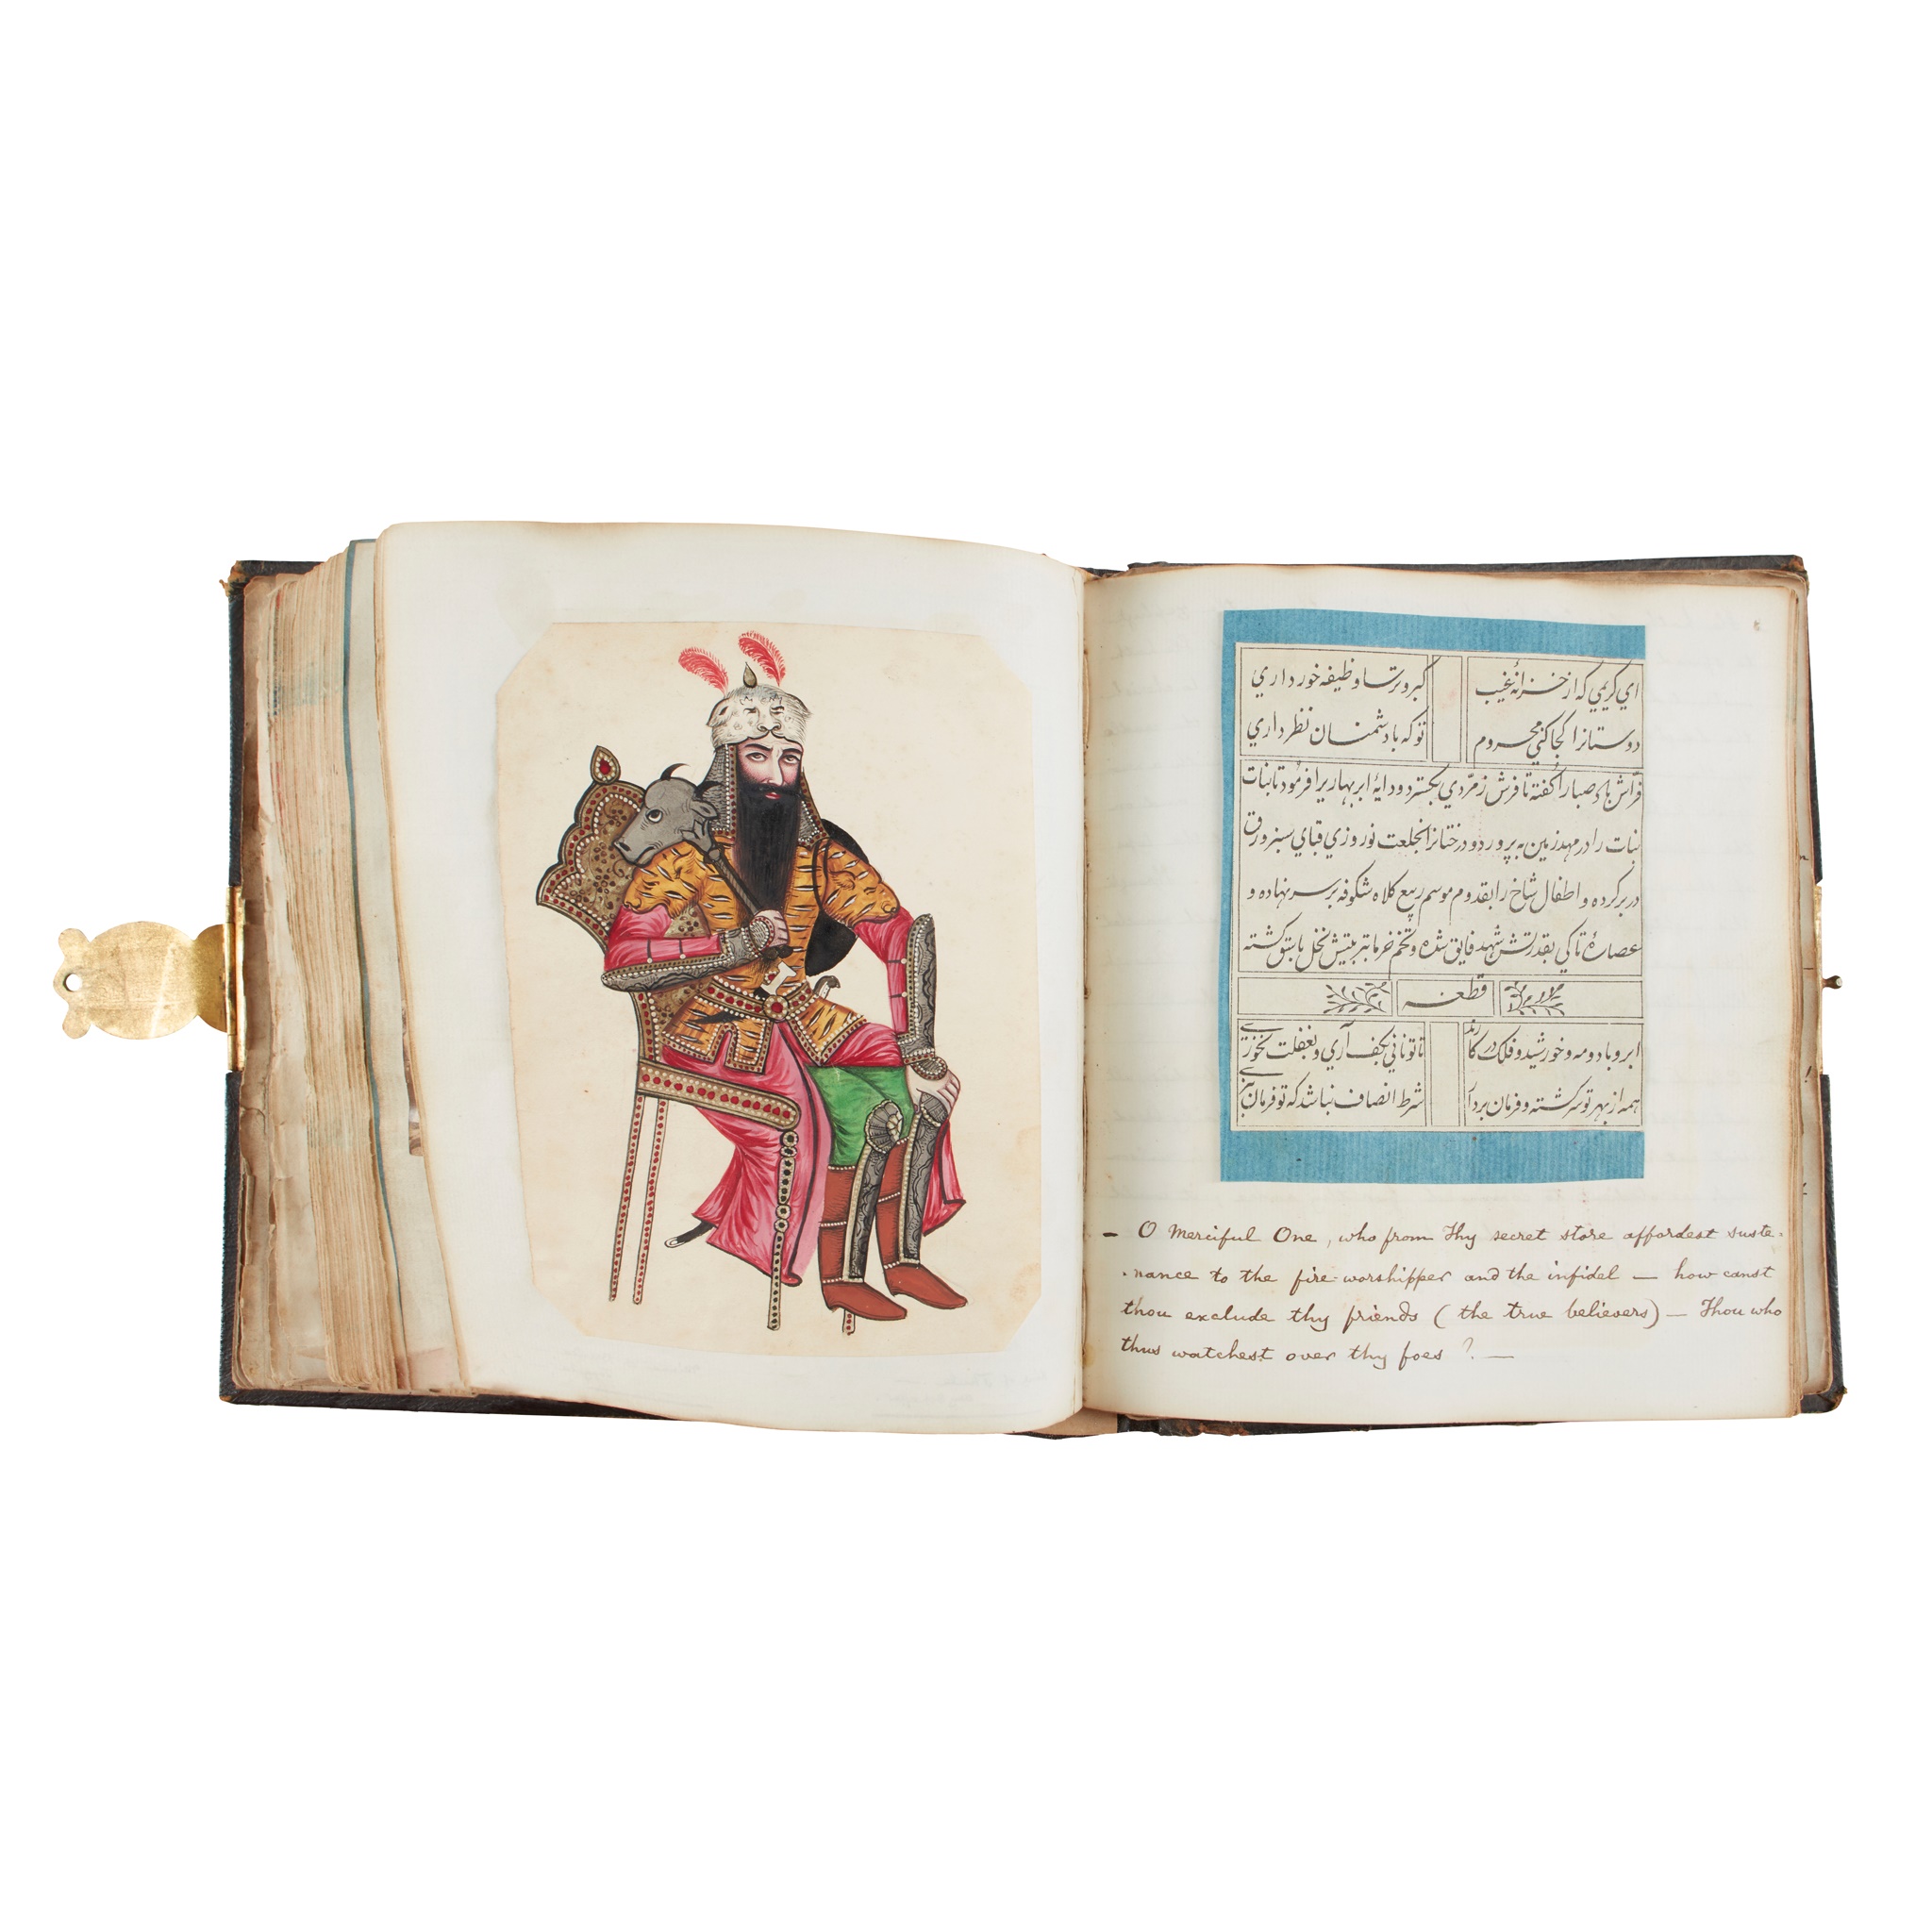 اي كريمي كه از خزانهٔ غيب
كبر و ترسا وظيفه خور داري
دوستانرا كجا كني محروم
تو كه با دشمنان نظر داري
فرّاش باد صبا را گفته تا فرش زمرّدي بگسترد و دايهٔ ابر بهاريرا فرمود تا بنات
نبات را در مهد زمين به پرورد و درختانرا بخلعت نوروزي قباي سبز ورق
در بر كرده و اطفال شاخ را بقدوم موسم ربيع كلاه شكوفه بر سر نهاده و
عصارهٔ تاكي بقدرتش شهد فايق شده و تخم خرما بتربيتش نخل باسق گشته
قطعه
ابر و باد و مه و خورشيد و فلك در كارند
تا تو ناني بكف آري و بغفلت نخوري
همه از بهر تو سرگشته و فرمان بردار
شرط انصاف نباشد كه تو فرمان نبري
– O Merciful One, who from Thy secret store affordest suste-
-nance to the fire-worshipper and the infidel — how canst
thou exclude thy friends (the true believers) — Thou who
thus watchest over thy foes ? —